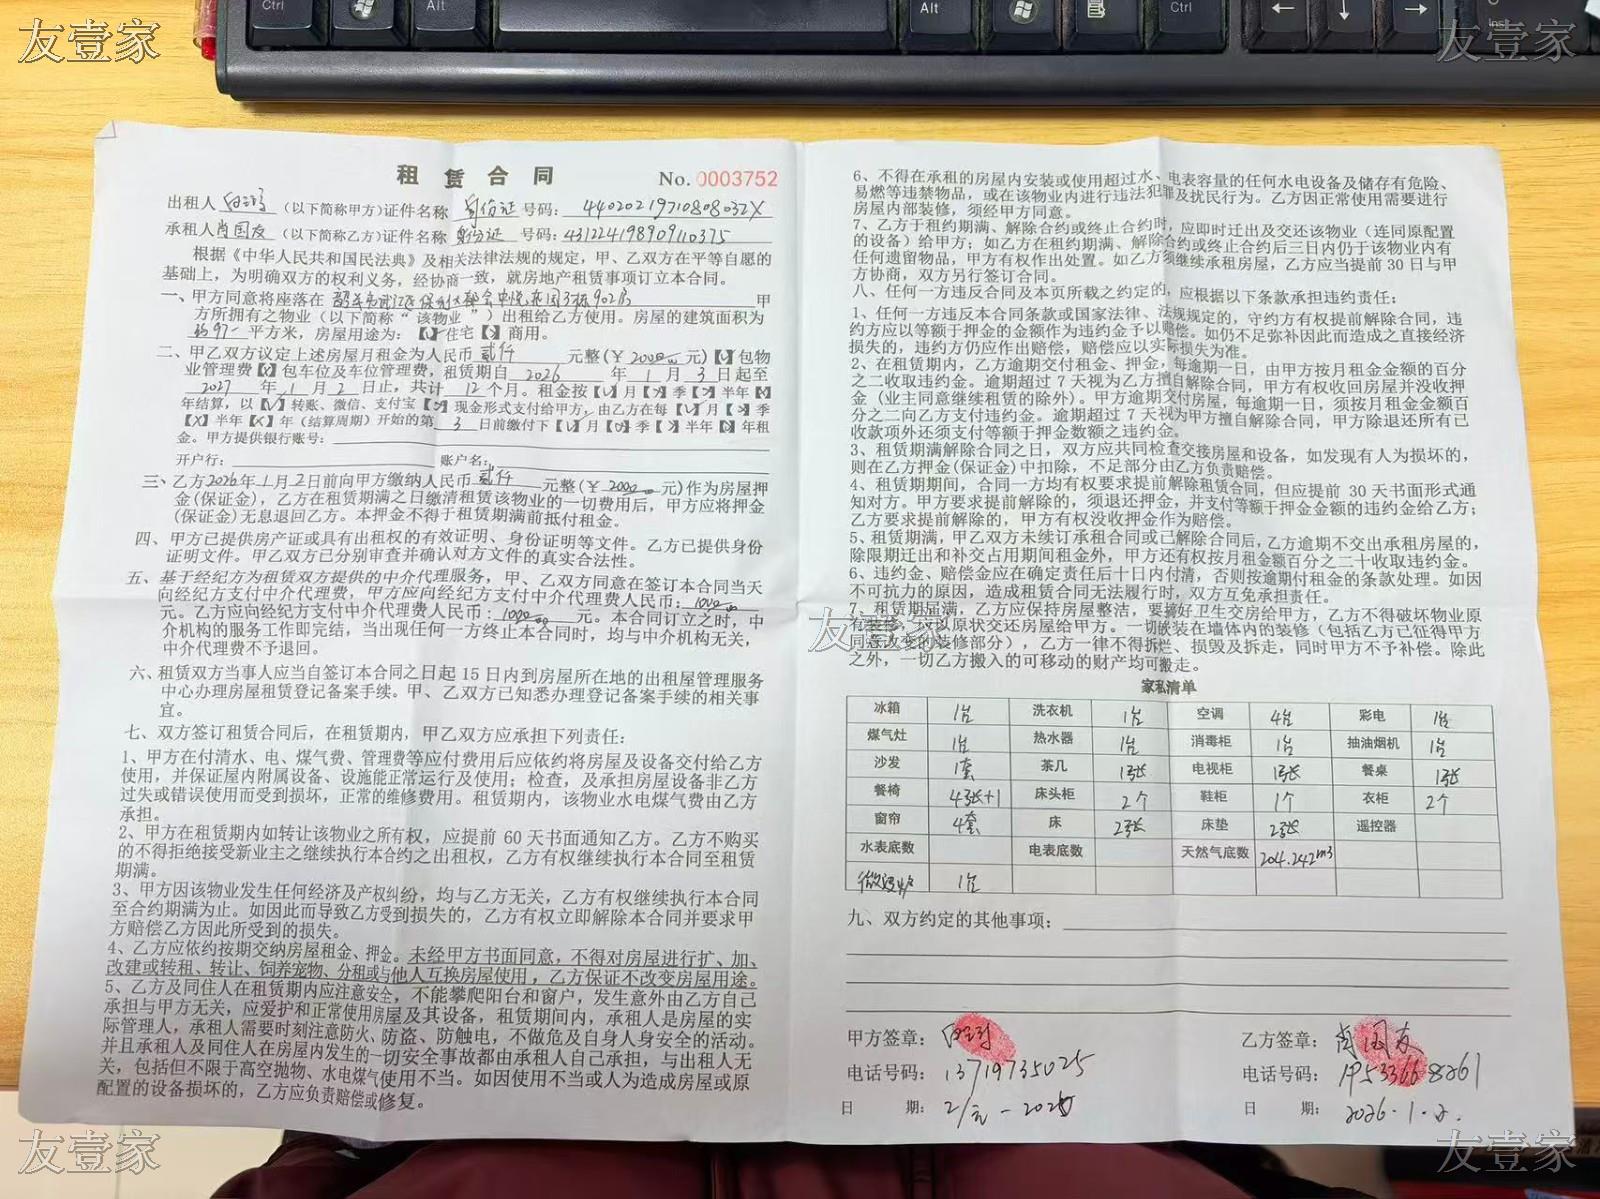 友壹家
友壹家
Ctrl
Alt
Alt
Ctrl
Ins
租赁合同
No. 0003752
出租人 (以下简称甲方)证件名称 身份证 号码: 44020219710808032X
承租人肖国友 (以下简称乙方)证件名称 身份证 号码: 431224198909110375
根据《中华人民共和国民法典》及相关法律法规的规定，甲、乙双方在平等自愿的
基础上，为明确双方的权利义务，经协商一致，就房地产租赁事项订立本合同。
一、甲方同意将座落在 韶关市武江区保利 中悦花园3栋902房 甲
方所拥有之物业（以下简称“该物业”）出租给乙方使用。房屋的建筑面积为
平方米，房屋用途为：【✓】住宅【×】商用。
二、甲乙双方议定上述房屋月租金为人民币 贰仟 元整(￥2000.00元)【✓】包物
业管理费【×】包车位及车位管理费，租赁期自 2026 年 1 月 3 日起至
2027 年 1 月 2 日止，共计 12 个月。租金按【✓】月【×】季【×】半年【×】
年结算，以【✓】转账、微信、支付宝【×】现金形式支付给甲方，由乙方在每【✓】月【×】季
【×】半年【×】年（结算周期）开始的第 3 日前缴付下【✓】月【×】季【×】半年【×】年租
金。甲方提供银行账号：
开户行： 账户名：
三、乙方2026年1月2日前向甲方缴纳人民币 贰仟 元整(￥2000.00元)作为房屋押
金(保证金)，乙方在租赁期满之日缴清租赁该物业的一切费用后，甲方应将押金
(保证金)无息退回乙方。本押金不得于租赁期满前抵付租金。
四、甲方已提供房产证或具有出租权的有效证明、身份证明等文件。乙方已提供身份
证明文件。甲乙双方已分别审查并确认对方文件的真实合法性。
五、基于经纪方为租赁双方提供的中介代理服务，甲、乙双方同意在签订本合同当天
向经纪方支付中介代理费，甲方应向经纪方支付中介代理费人民币：1000.00
元。乙方应向经纪方支付中介代理费人民币：1000.00 元。本合同订立之时，中
介机构的服务工作即完结，当出现任何一方终止本合同时，均与中介机构无关，
中介代理费不予退回。
六、租赁双方当事人应当自签订本合同之日起 15 日内到房屋所在地的出租屋管理服务
中心办理房屋租赁登记备案手续。甲、乙双方已知悉办理登记备案手续的相关事
宜。
七、双方签订租赁合同后，在租赁期内，甲乙双方应承担下列责任：
1、甲方在付清水、电、煤气费、管理费等应付费用后应依约将房屋及设备交付给乙方
使用，并保证屋内附属设备、设施能正常运行及使用；检查，及承担房屋设备非乙方
过失或错误使用而受到损坏，正常的维修费用。租赁期内，该物业水电煤气费由乙方
承担。
2、甲方在租赁期内如转让该物业之所有权，应提前 60 天书面通知乙方。乙方不购买
的不得拒绝接受新业主之继续执行本合约之出租权，乙方有权继续执行本合同至租赁
期满。
3、甲方因该物业发生任何经济及产权纠纷，均与乙方无关，乙方有权继续执行本合同
至合约期满为止。如因此而导致乙方受到损失的，乙方有权立即解除本合同并要求甲
方赔偿乙方因此所受到的损失。
4、乙方应依约按期交纳房屋租金、押金。未经甲方书面同意，不得对房屋进行扩、加、
改建或转租、转让、饲养宠物、分租或与他人互换房屋使用，乙方保证不改变房屋用途。
5、乙方及同住人在租赁期内应注意安全，不能攀爬阳台和窗户，发生意外由乙方自己
承担与甲方无关，应爱护和正常使用房屋及其设备，租赁期间内，承租人是房屋的实
际管理人，承租人需要时刻注意防火、防盗、防触电，不做危及自身人身安全的活动。
并且承租人及同住人在房屋内发生的一切安全事故都由承租人自己承担，与出租人无
关，包括但不限于高空抛物、水电煤气使用不当。如因使用不当或人为造成房屋或原
配置的设备损坏的，乙方应负责赔偿或修复。
6、不得在承租的房屋内安装或使用超过水、电表容量的任何水电设备及储存有危险、
易燃等违禁物品，或在该物业内进行违法犯罪及扰民行为。乙方因正常使用需要进行
房屋内部装修，须经甲方同意。
7、乙方于租约期满、解除合约或终止合约时，应即时迁出及交还该物业（连同原配置
的设备）给甲方；如乙方在租约期满、解除合约或终止合约后三日内仍于该物业内有
任何遗留物品，甲方有权作出处置。如乙方须继续承租房屋，乙方应当提前 30 日与甲
方协商，双方另行签订合同。
八、任何一方违反合同及本页所载之约定的，应根据以下条款承担违约责任：
1、任何一方违反本合同条款或国家法律、法规规定的，守约方有权提前解除合同，违
约方应以等额于押金的金额作为违约金予以赔偿。如仍不足弥补因此而造成之直接经济
损失的，违约方仍应作出赔偿，赔偿应以实际损失为准。
2、在租赁期内，乙方逾期交付租金、押金，每逾期一日，由甲方按月租金金额的百分
之二收取违约金。逾期超过 7 天视为乙方擅自解除合同，甲方有权收回房屋并没收押
金（业主同意继续租赁的除外）。甲方逾期交付房屋，每逾期一日，须按月租金金额百
分之二向乙方支付违约金。逾期超过 7 天视为甲方擅自解除合同，甲方除退还所有已
收款项外还须支付等额于押金数额之违约金。
3、租赁期满解除合同之日，双方应共同检查交接房屋和设备，如发现有人为损坏的，
则在乙方押金(保证金)中扣除，不足部分由乙方负责赔偿。
4、租赁期期间，合同一方均有权要求提前解除租赁合同，但应提前 30 天书面形式通
知对方。甲方要求提前解除的，须退还押金，并支付等额于押金金额的违约金给乙方；
乙方要求提前解除的，甲方有权没收押金作为赔偿。
5、租赁期满，甲乙双方未续订承租合同或已解除合同后，乙方逾期不交出承租房屋的，
除限期迁出和补交占用期间租金外，甲方还有权按月租金额百分之二十收取违约金。
6、违约金、赔偿金应在确定责任后十日内付清，否则按逾期付租金的条款处理。如因
不可抗力的原因，造成租赁合同无法履行时，双方互免承担责任。
7、租赁期届满，乙方应保持房屋整洁，要搞好卫生交房给甲方，乙方不得破坏物业原
有装修，只以原状交还房屋给甲方。一切嵌装在墙体内的装修（包括乙方已征得甲方
同意改变的装修部分），乙方一律不得拆烂、损毁及拆走，同时甲方不予补偿。除此
之外，一切乙方搬入的可移动的财产均可搬走。
友壹家
家私清单
冰箱 1台 洗衣机 1台 空调 4台 彩电 1台
煤气灶 1台 热水器 1台 消毒柜 1台 抽油烟机 1台
沙发 1套 茶几 1张 电视柜 1张 餐桌 1张
餐椅 4张+1 床头柜 2个 鞋柜 1个 衣柜 2个
窗帘 4套 床 2张 床垫 2张 遥控器
水表底数 电表底数 天然气底数 204.242m3
微波炉 1台
九、双方约定的其他事项：
甲方签章：
乙方签章： 肖国友
电话号码： 13719735025
电话号码：
日 期：
日 期： 2026.1.2.
友壹家
友壹家